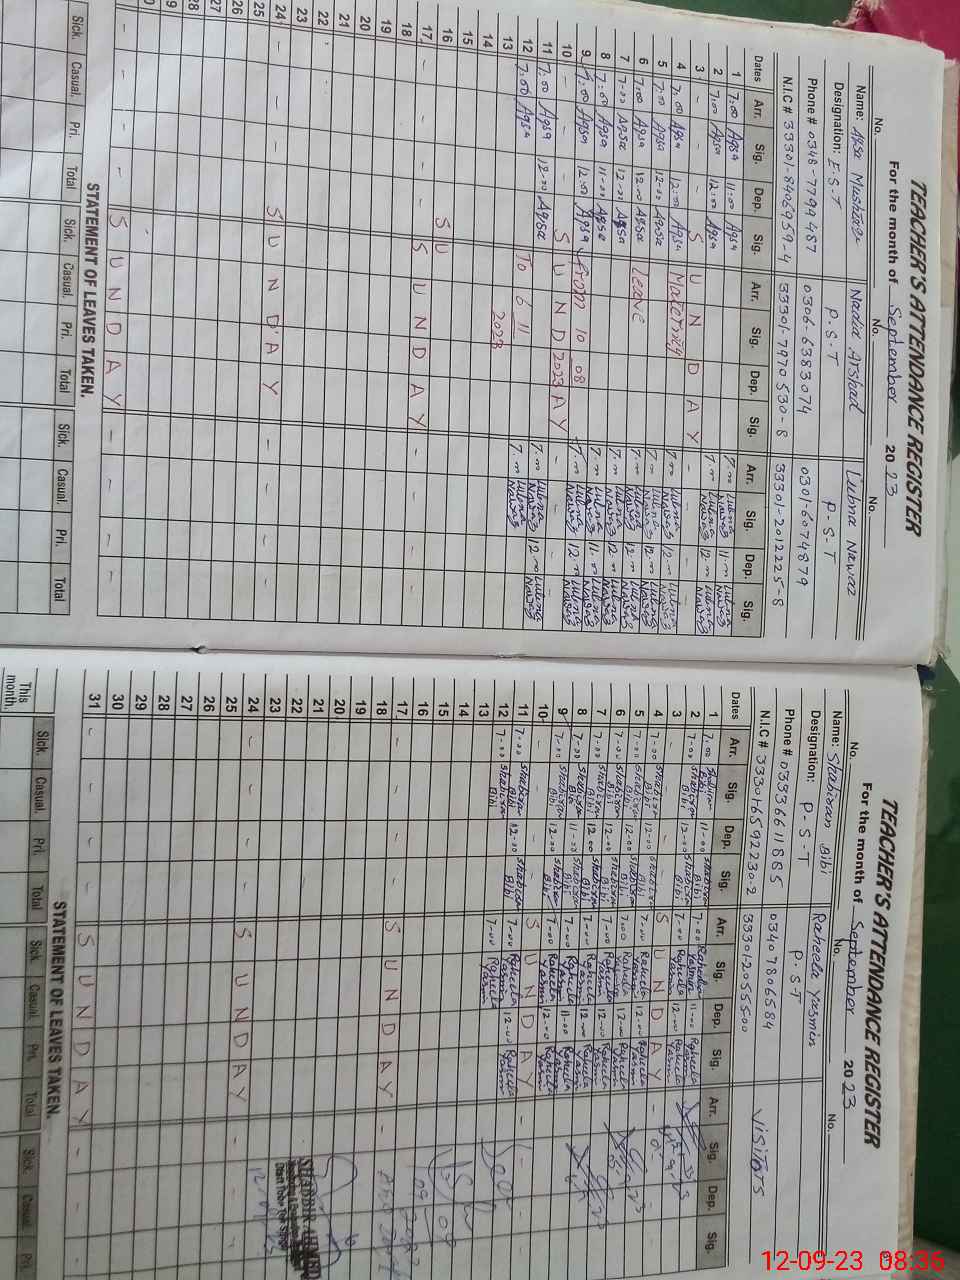 TEACHER'S ATTENDANCE REGISTER
For the month of September 2023
No. No. No.
Name: Aqsa Mushtaq Nadia Arshad Lubna Nawaz
Designation: E.S.T P.S.T P-S-T
Phone # 0348-7799487 0306-6383074 0301-6074879
N.I.C # 33301-8406959-4 33301-7970530-8 33301-2012225-8
Dates Arr. Sig. Dep. Sig. Arr. Sig. Dep. Sig. Arr. Sig. Dep. Sig.
1 7:00 Aqsa 11:00 Aqsa 7.00 Lubna Nawaz 11.00 Lubna Nawaz
2 7:00 Aqsa 12:00 Aqsa 7.00 Lubna Nawaz 12.00 Lubna Nawaz
3 - - - SUNDAY - - -
4 7:00 Aqsa 12:00 Aqsa Maternity 7.00 Lubna Nawaz 12.00 Lubna Nawaz
5 7:00 Aqsa 12-00 Aqsa 7.00 Lubna Nawaz 12.00 Lubna Nawaz
6 7:00 Aqsa 12.00 Aqsa Leave 7.00 Lubna Nawaz 12.00 Lubna Nawaz
7 7-00 Aqsa 12-00 Aqsa 7.00 Lubna Nawaz 12.00 Lubna Nawaz
8 7:00 Aqsa 11-00 Aqsa 7.00 Lubna Nawaz 11.00 Lubna Nawaz
9 7:00 Aqsa 12:00 Aqsa from 10 08 2023 7.00 Lubna Nawaz 12.00 Lubna Nawaz
10 - - - SUNDAY - - -
11 7:00 Aqsa 12-00 Aqsa 7.00 Lubna Nawaz 12.00 Lubna Nawaz
12 7:00 Aqsa To 6 11 2023 7.00 Lubna Nawaz
13
14
15
16 SU
17 - - - SUNDAY - - -
18
19
20
21
22
23
24 - - - SUNDAY - - -
25
26
27
28
29
30
- - - SUNDAY - - -
STATEMENT OF LEAVES TAKEN.
Sick. Casual. Pri. Total Sick. Casual. Pri. Total Sick. Casual. Pri. Total
TEACHER'S ATTENDANCE REGISTER
For the month of September 2023
No. No. No.
Name: Shabiran Bibi Raheela Yasmin
Designation: P-S-T P.S-T
Phone # 03336611885 03407806584
N.I.C # 333016592230-2 333012055500 Visitors
Dates Arr. Sig. Dep. Sig. Arr. Sig. Dep. Sig. Arr. Sig. Dep. Sig.
1 7-00 Shabiran Bibi 11-00 Shabiran Bibi 7-00 Raheela Yasmin 11-00 Raheela Yasmin
2 7-00 Shabiran Bibi 12-00 Shabiran Bibi 7-00 Raheela Yasmin 12-00 Raheela Yasmin
3 - - - SUNDAY
4 7-00 Shabiran Bibi 12-00 Shabiran Bibi 7-00 Raheela Yasmin 12-00 Raheela Yasmin
5 7-00 Shabiran Bibi 12-00 Shabiran Bibi 7.00 Raheela Yasmin 12-00 Raheela Yasmin
6 7-00 Shabiran Bibi 12-00 Shabiran Bibi 7-00 Raheela Yasmin 12-00 Raheela Yasmin
7 7-00 Shabiran Bibi 12.00 Shabiran Bibi 7-00 Raheela Yasmin 12-00 Raheela Yasmin
8 7-00 Shabiran Bibi 11-00 Shabiran Bibi 7-00 Raheela Yasmin 11-00 Raheela Yasmin
9 7-00 Shabiran Bibi 12-00 Shabiran Bibi 7-00 Raheela Yasmin 12-00 Raheela Yasmin
10 - - - SUNDAY
11 7-00 Shabiran Bibi 12-00 Shabiran Bibi 7-00 Raheela Yasmin 12-00 Raheela Yasmin
12 7-00 Shabiran Bibi 7-00 Raheela Yasmin
13
14
15
16
17 - - - SUNDAY
18
19
20
21
22
23
24 - - - SUNDAY
25
26
27
28
29
30
31 - - - SUNDAY
STATEMENT OF LEAVES TAKEN.
Sick. Casual. Pri. Total Sick. Casual. Pri. Total Sick. Casual. Pri.
This month.
SHABBIR AHMED
12-09-23 08:36